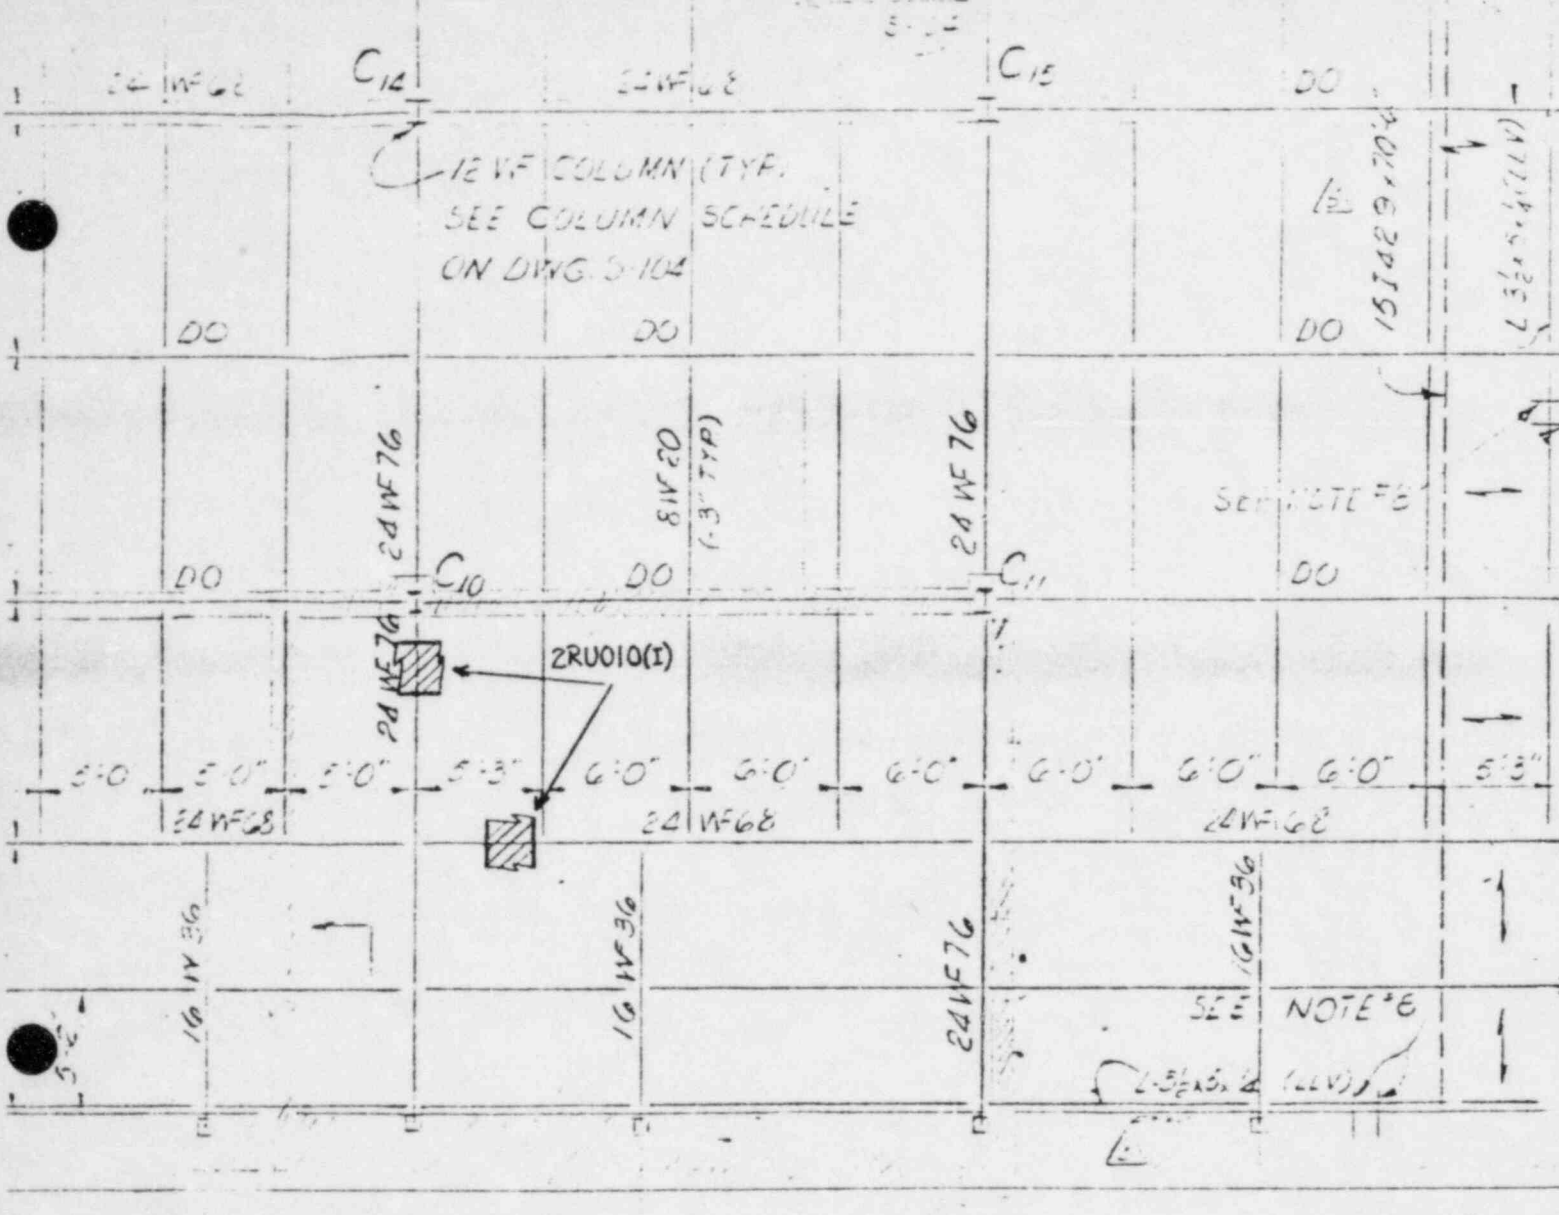 24 WF 68
C14
24 WF 68
C15
DO
12 WF COLUMN (TYP.
SEE COLUMN SCHEDULE
ON DWG. S-104
15 I 42.9 x
DO
DO
DO
24 WF 76
8 WF 20
(-3" TYP.)
24 WF 76
SEE NOTE #8
DO
C10
DO
C11
DO
24 WF 76
2RU010(I)
5'-0"
5'-0"
5'-0"
5'-3"
6'-0"
6'-0"
6'-0"
6'-0"
6'-0"
6'-0"
5'-3"
24 WF 68
24 WF 68
24 WF 68
16 WF 36
16 WF 36
24 WF 76
16 WF 36
SEE NOTE #8
(LLV)